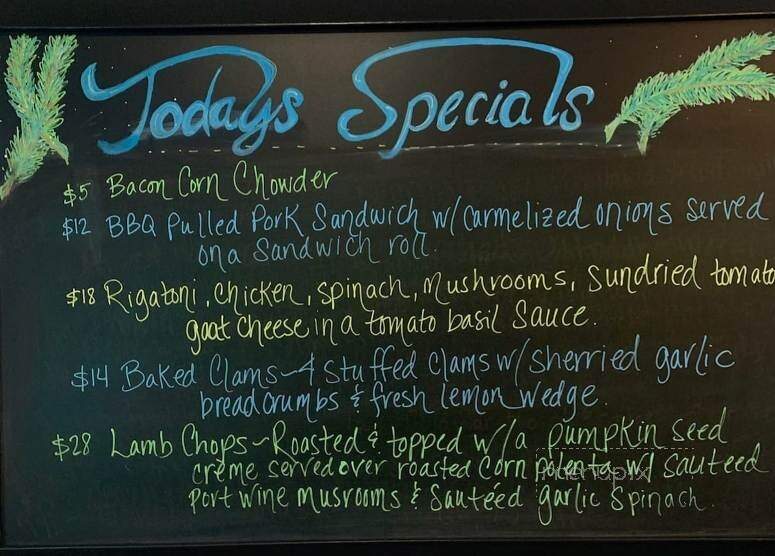 Todays Specials
$5 Bacon Corn Chowder
$12 BBQ Pulled Pork Sandwich w/carmelized onions served
on a Sandwich roll.
$18 Rigatoni, chicken, spinach, mushrooms, sundried tomato
goat cheese in a tomato basil sauce.
$14 Baked Clams~4 stuffed clams w/ sherried garlic
breadcrumbs & fresh lemon wedge.
$28 Lamb Chops~Roasted & topped w/a pumpkin seed
creme served over roasted corn polenta w/ sauteed
port wine musrooms & sautéed garlic spinach.